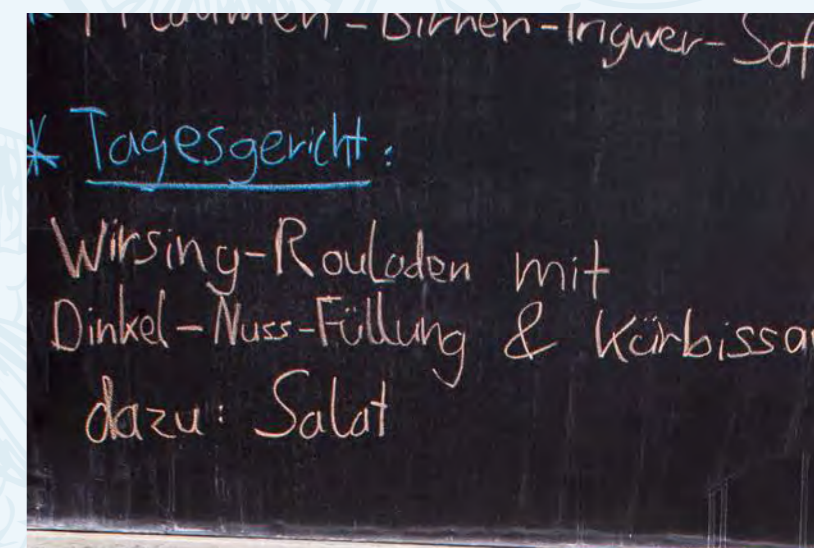 * Pflaumen-Birnen-Ingwer-Saf
* Tagesgericht:
Wirsing-Rouladen mit
Dinkel-Nuss-Füllung & Kürbissa
dazu: Salat